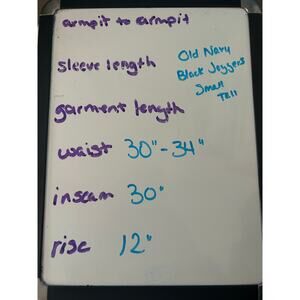 armpit to armpit
sleeve length
Old Navy
Black Joggers
Small
Tall
garment length
waist 30"-34"
inseam 30"
rise 12"